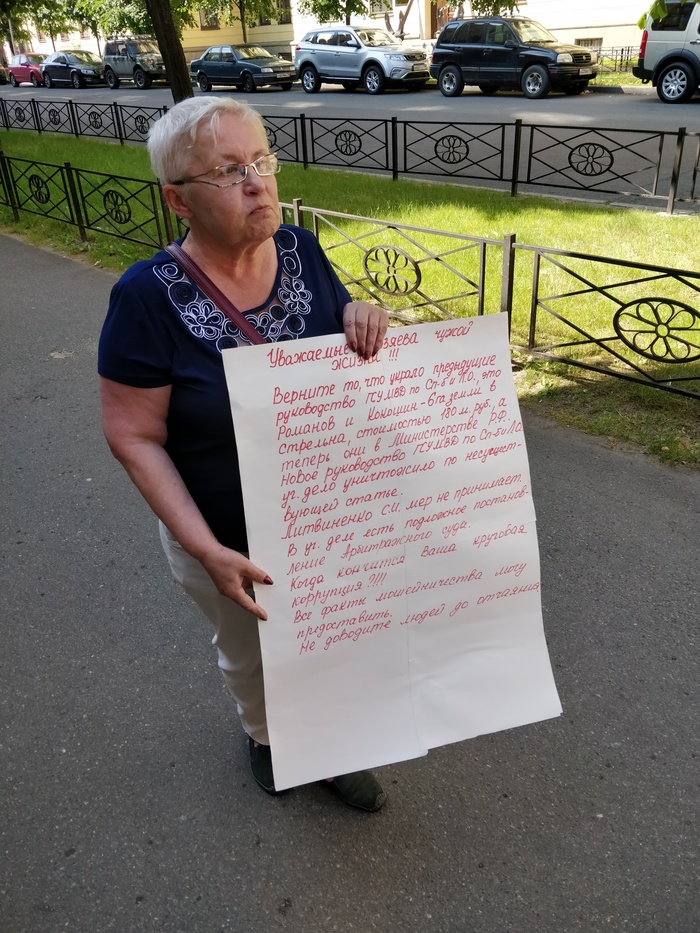 Уважаемые хозяева чужой
жизни !!!
Верните то, что украло предыдущие
руководство ГУМВД по Сп-б и Л.О., это
Романов и Кокошин - 6га земли в
Стрельна, стоимостью 180 м. руб., а
теперь они в Министерстве Р.Ф.
Новое руководство ГУМВД по Сп-б и ЛО
уг. дело уничтожило по несущест-
вующей статье.
Литвиненко С.И. мер не принимает.
В уг. деле есть подложное постанов-
ление Арбитражного суда.
Когда кончится Ваша круговая
коррупция ?!!!
Все факты мошейничества могу
предоставить.
Не доводите людей до отчаяния